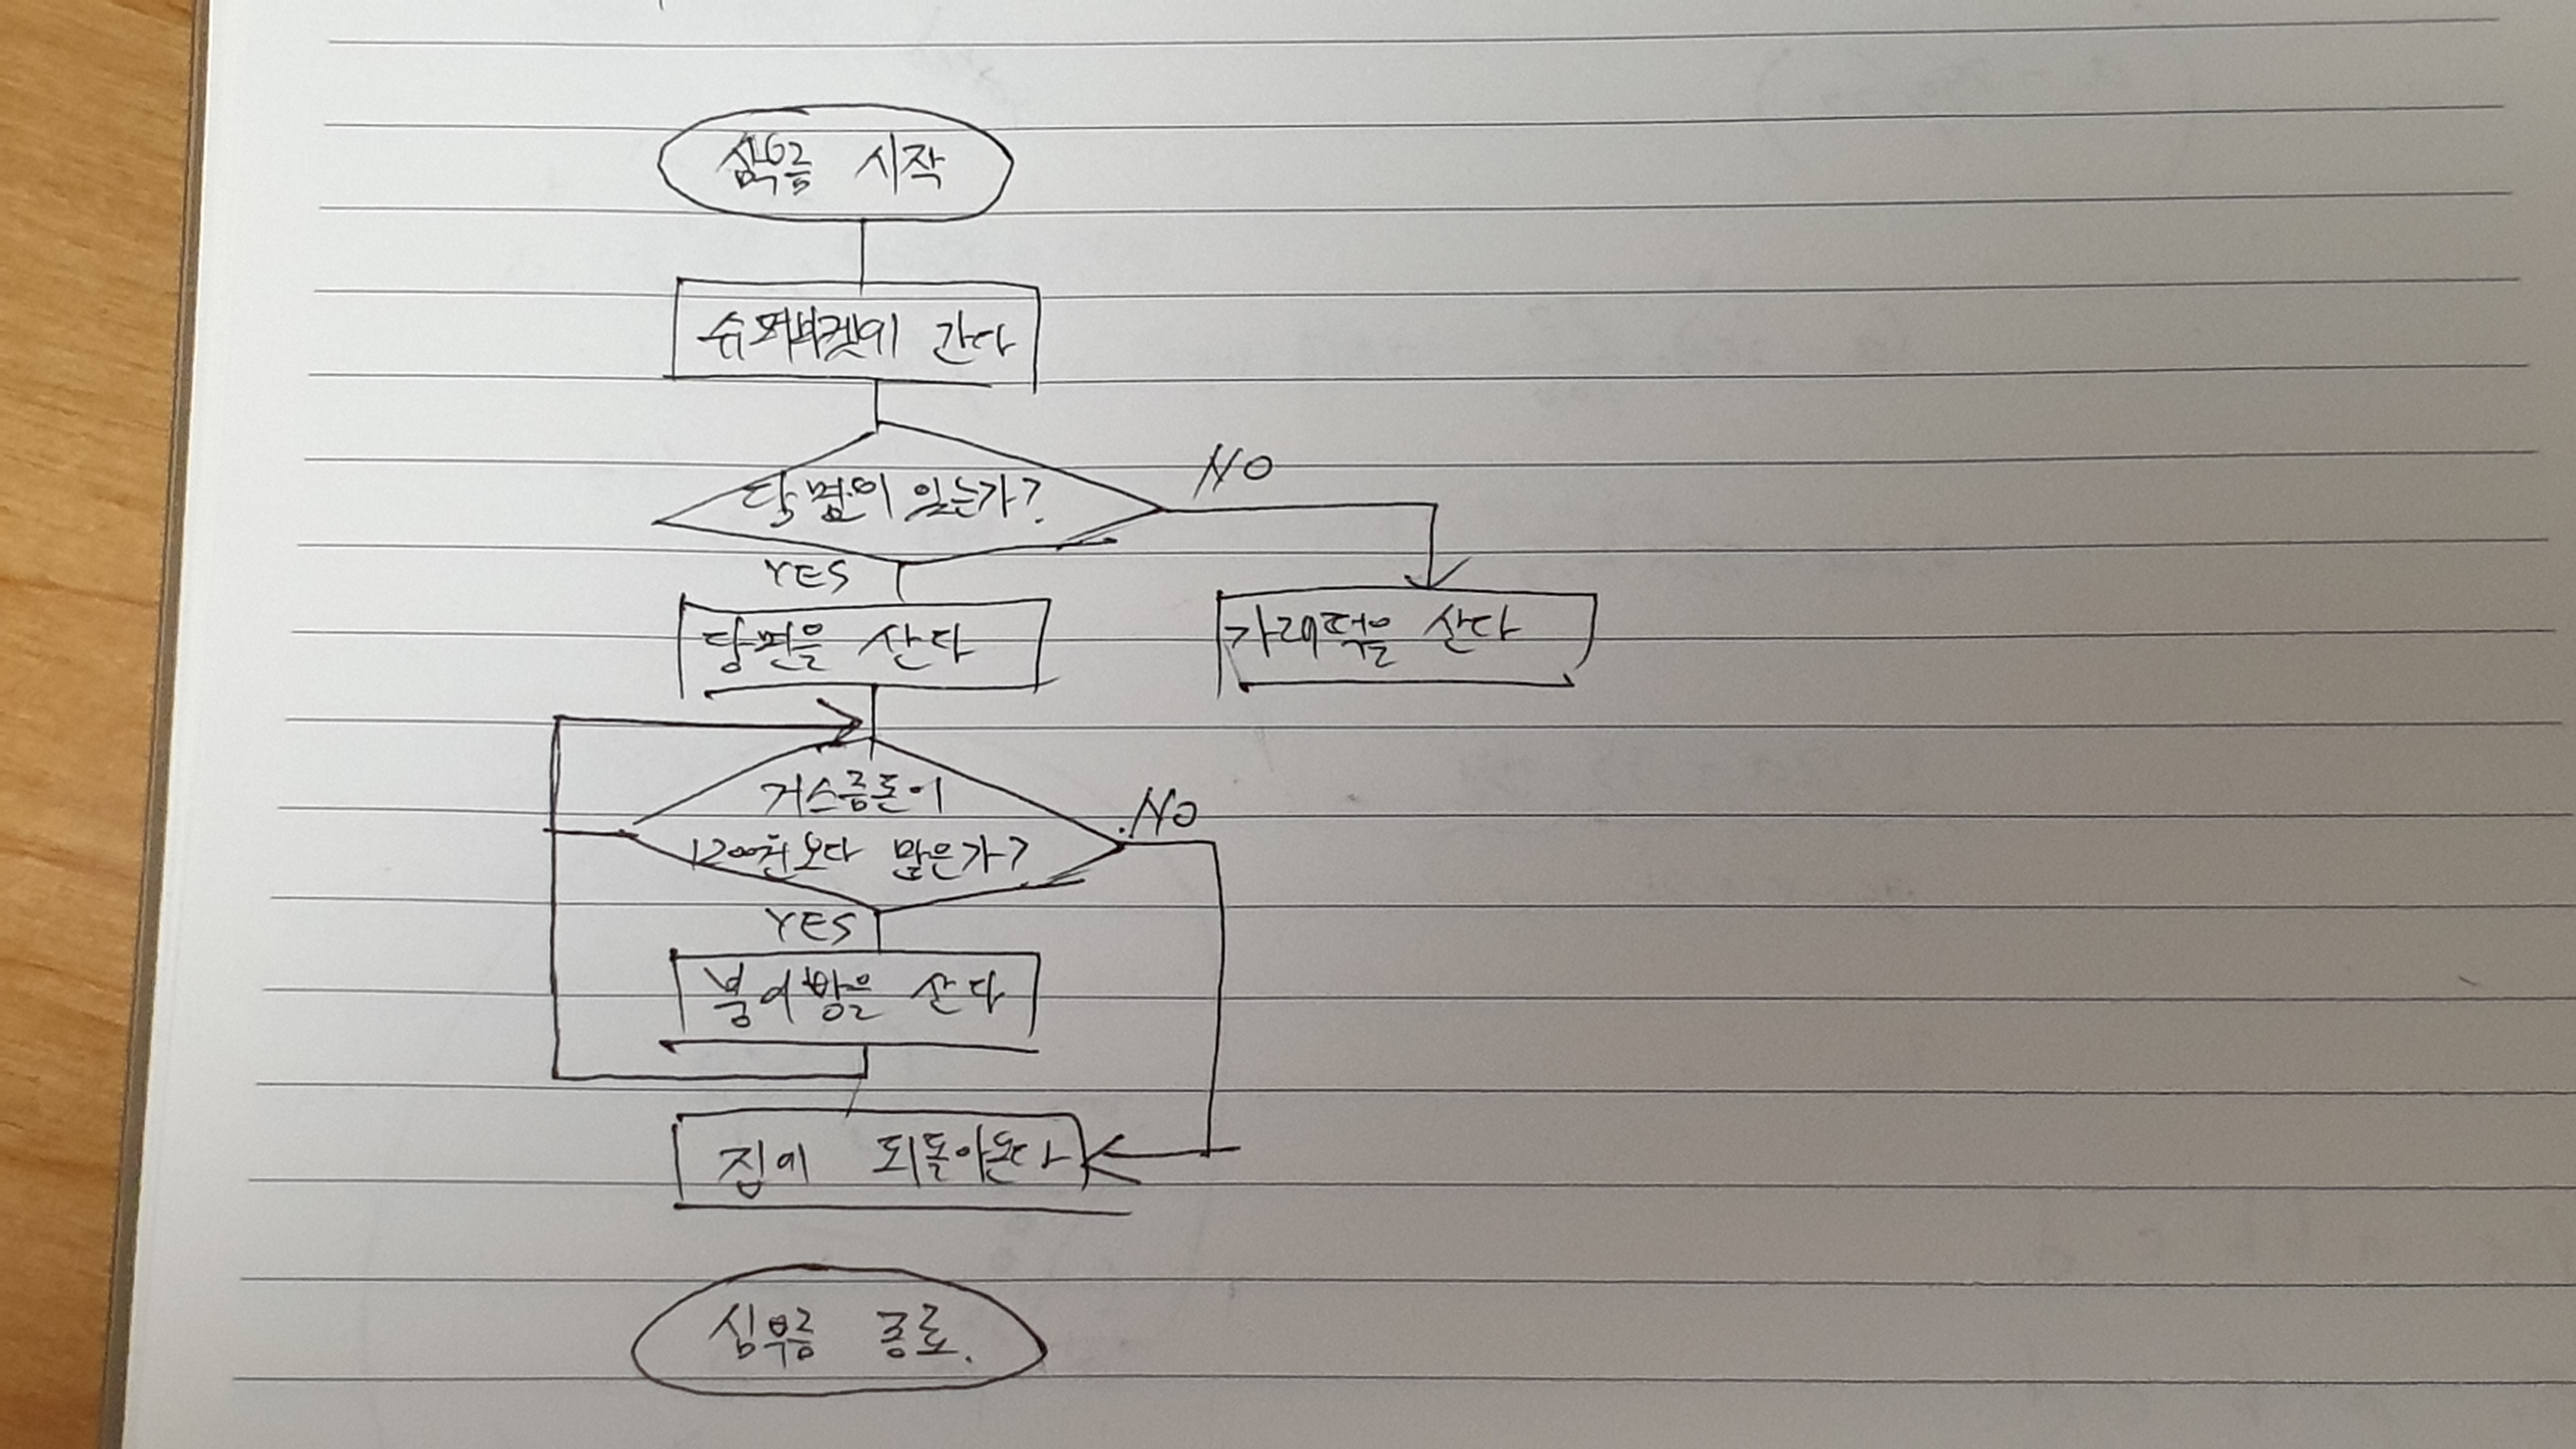 심부름 시작
슈퍼마켓에 간다
당면이 있는가?
NO
YES
당면을 산다
가래떡을 산다
거스름돈이
1200원보다 많은가?
NO
YES
붕어빵을 산다
집에 되돌아온다
심부름 종료.